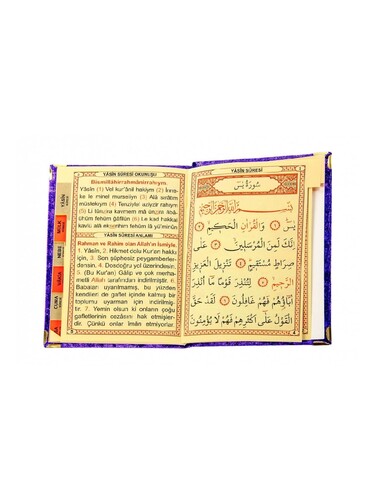 YÂSÎN SÛRESİ OKUNUŞU
Bismillâhirrahmânirrahıym.
Yâsîn (1) Vel kur'ânil hakiym (2) İnne-
ke le minel murseliyn (3) Alâ sırâtım
müstekıym (4) Tenziylel aziyzir rahiym
(5) Li tünzira kavmem mâ ünzira âbâ-
ühüm fehüm gâfilun (6) Le kad hakkal
kavlü alâ ekserihim fehüm lâ yü'minun
YÂSÎN SÛRESİ ANLAMI
Rahman ve Rahim olan Allah'ın İsmiyle.
1. Yâsîn, 2. Hikmet dolu Kur'an hakkı
için, 3. Sen şüphesiz peygamberler-
densin, 4. Dosdoğru yol üzerindesin.
5. (Bu Kur'an) Gâlip ve çok merha-
metli Allah tarafından indirilmiştir. 6.
Babaları uyarılmamış, bu yüzden
kendileri de gaflet içinde kalmış bir
toplumu uyarman için indirilmiştir.
7. Yemin olsun ki onların çoğu
gafletlerinin cezâsını hak etmişler-
dir. Çünkü onlar îman etmiyorlar.
YÂSÎN
MÜLK
NEBE
SECDE
CUMA
YÂSÎN SÛRESİ
سُورَةُ يٰسٓ
بِسْمِ اللّٰهِ الرَّحْمٰنِ الرَّحِيمِ
يٰسٓ ۝ وَالْقُرْاٰنِ الْحَكِيمِ ۝
اِنَّكَ لَمِنَ الْمُرْسَلِينَ ۝ عَلٰى
صِرَاطٍ مُسْتَقِيمٍ ۝ تَنْزِيلَ الْعَزِيزِ
الرَّحِيمِ ۝ لِتُنْذِرَ قَوْمًا مَٓا اُنْذِرَ
اٰبَٓاؤُهُمْ فَهُمْ غَافِلُونَ ۝ لَقَدْ حَقَّ
الْقَوْلُ عَلٰٓى اَكْثَرِهِمْ فَهُمْ لَا يُؤْمِنُونَ